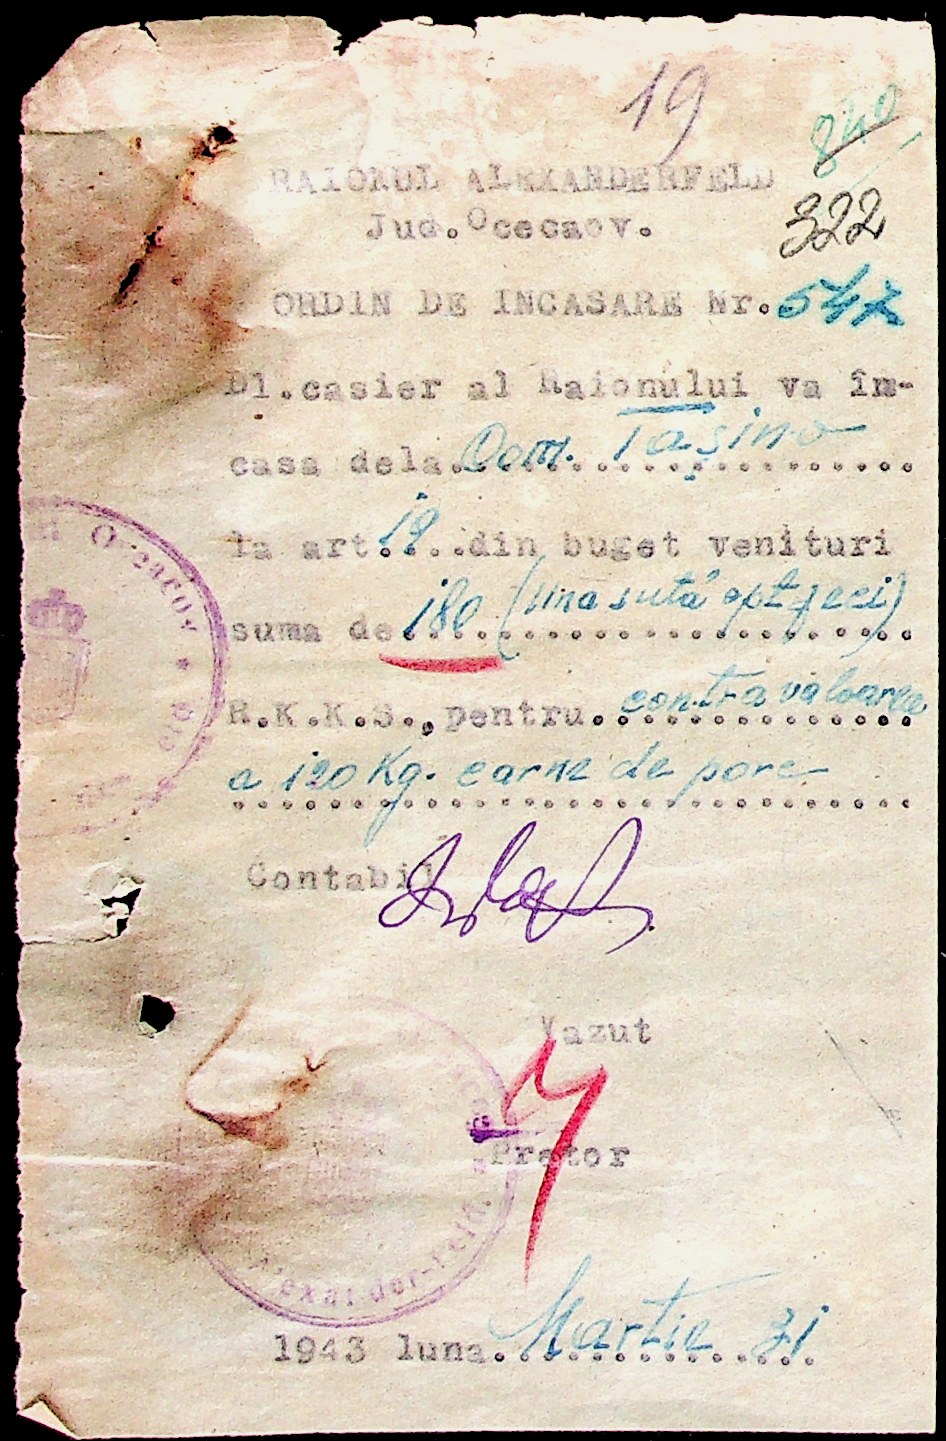 19
840
RAIONUL ALEXANDERFELD
322
Jud. Oceacov.
ORDIN DE INCASARE Nr. 547
Dl.casier al Raionului va în-
casa dela. Com. Tașino
la art. 19 ..din buget venituri
suma de 180 (una sută opt zeci)
R.K.K.S., pentru. contra valoarea
a 120 Kg. carne de porc
Contabil
Vazut
Pretor
Alexander-Feld.
1943 luna. Martie 31